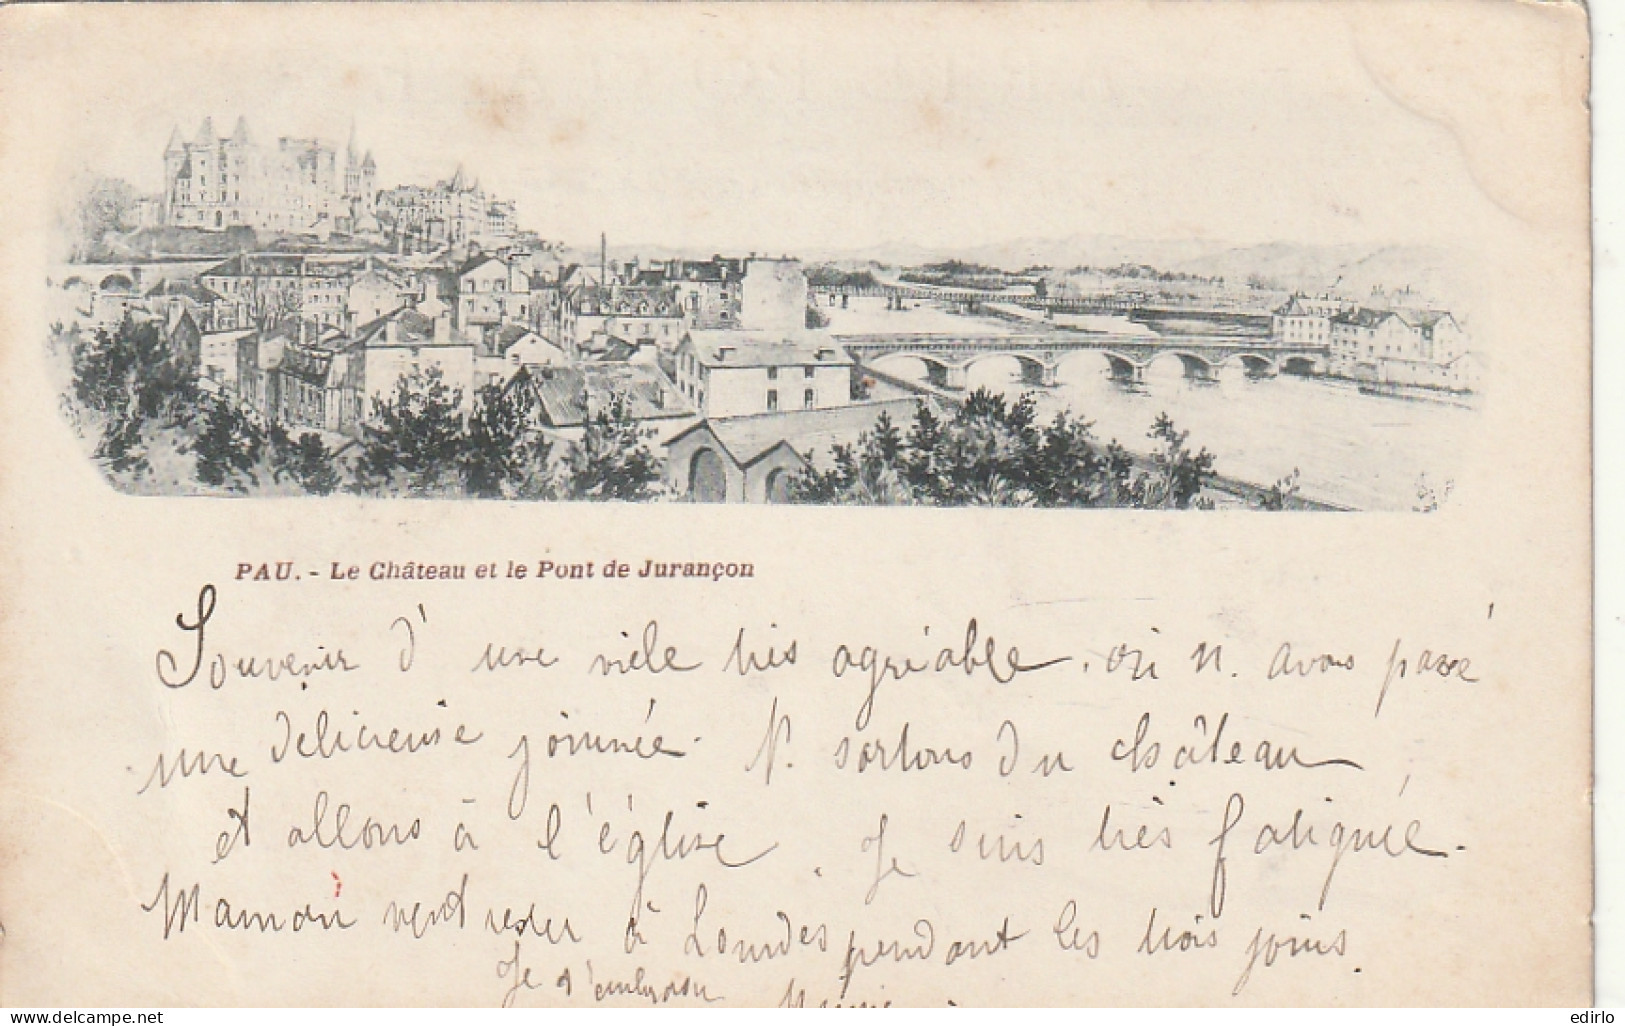 PAU. - Le Château et le Pont de Jurançon
Souvenir d'une ville très agréable, où n. avons passé
une délicieuse journée. N. sortons du château
et allons à l'église. Je suis très fatiguée.
Maman veut rester à Lourdes pendant les trois jours.
Je t'embrasse
delcampe.net
edirlo